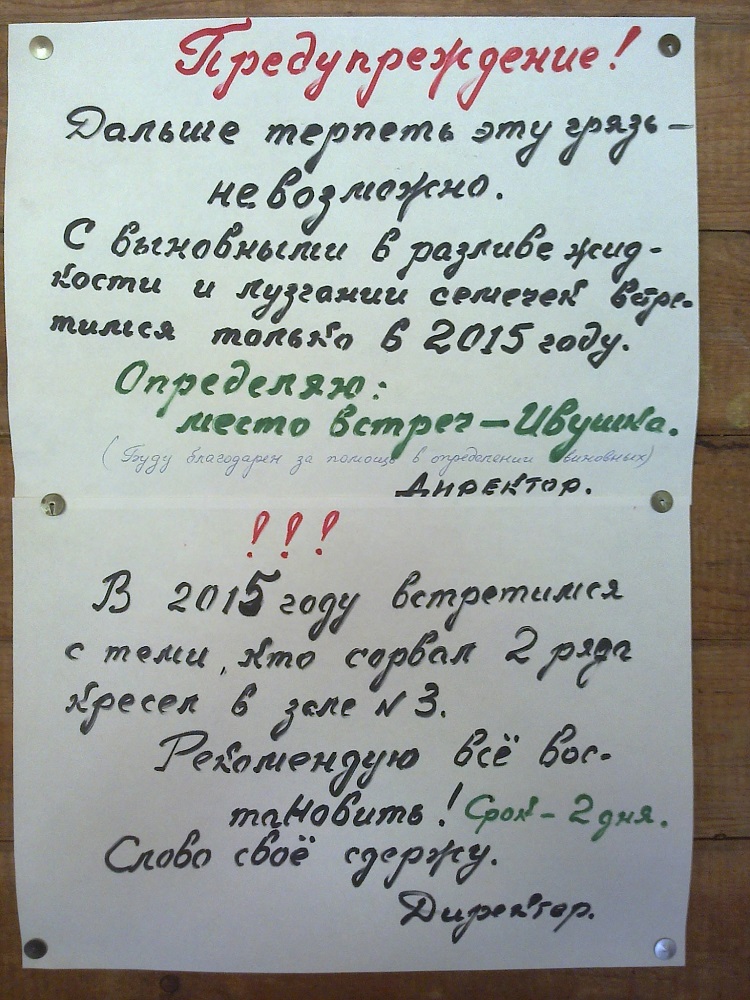 Предупреждение!
Дальше терпеть эту грязь —
невозможно.
С выновными в разливе жид-
кости и лузгании семечек встре-
тимся только в 2015 году.
Определяю:
место встреч — Ивушка.
(Буду благодарен за помощь в определении виновных)
Директор.
!!!
В 2015 году встретимся
с теми, кто сорвал 2 ряда
кресел в зале №3.
Рекомендую всё вос-
тановить! Срок - 2 дня.
Слово своё сдержу.
Директор.